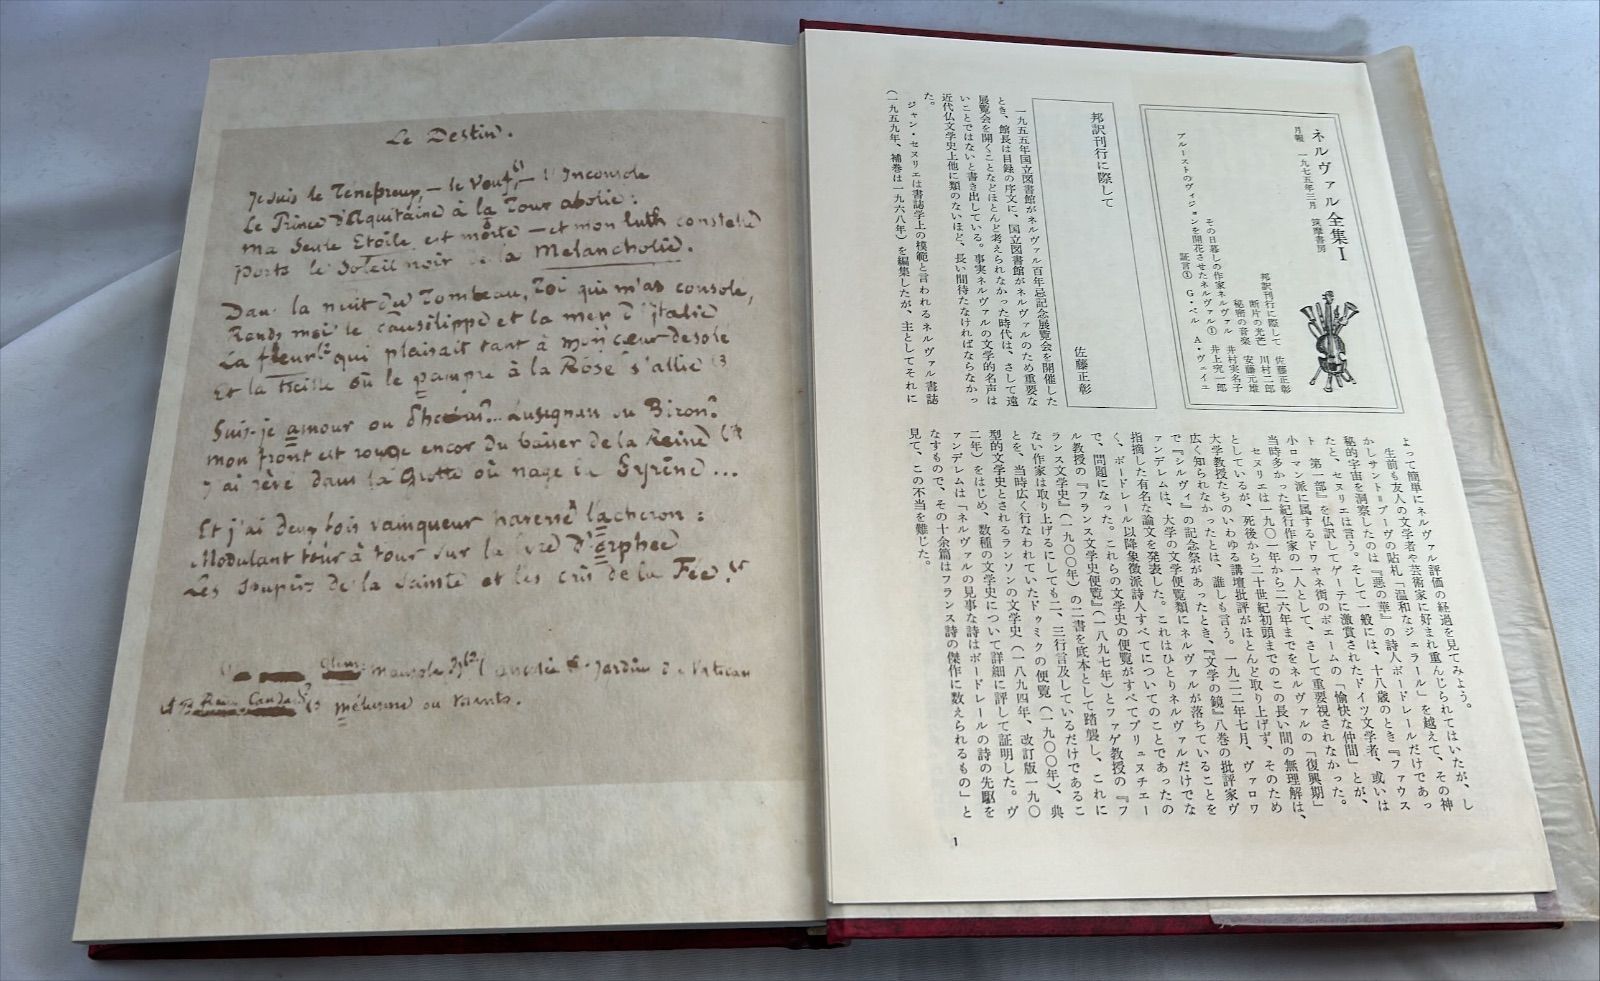 Le Destin.
Je suis le Ténébreux, — le Veuf, (1) — l'Inconsolé
Le Prince d'Aquitaine à la Tour abolie :
Ma Seule Etoile est morte — et mon luth constellé
Porte le Soleil noir de la Melancholie.
Dans la nuit du Tombeau, Toi qui m'as consolé,
Rends moi le Pausilippe et la mer d'Italie
La fleur (2 qui plaisait tant à mon cœur désolé
Et la treille où le pampre à la Rose s'allie (3
Suis-je amour ou Phœbus?... Lusignan ou Biron?
Mon front est rouge encor du baiser de la Reine (4
J'ai rêvé dans la Grotte où nage la Syrène...
Et j'ai deux fois vainqueur traversé l'acheron :
Modulant tour à tour sur la lyre d'Orphée
Les Soupirs de la Sainte et les cris de la Fée.
mausole (2 ancolie (3 Jardin du Vatican
Reine Candace (5 mélusine ou manto.
ネルヴァル全集 I
月報 一九七五年三月 筑摩書房
邦訳刊行に際して 佐藤正彰
断片の光芒 川村二郎
秘密の音楽 安藤元雄
その日暮しの作家ネルヴァル 井村実名子
プルーストのヴィジョンを開花させたネルヴァル① 井上究一郎
証言① G・ベル A・ヴェイユ
邦訳刊行に際して
佐藤正彰
一九五五年国立図書館がネルヴァル百年忌記念展覧会を開催した
とき、館長は目録の序文に、国立図書館がネルヴァルのため重要な
展覧会を開くことなどほとんど考えられなかった時代は、さして遠
いことではないと書き出している。事実ネルヴァルの文学的名声は
近代仏文学史上他に類のないほど、長い間待たなければならなかっ
た。
ジャン・セヌリエは書誌学上の模範と言われるネルヴァル書誌
（一九五九年、補巻は一九六八年）を編集したが、主としてそれに
よって簡単にネルヴァル評価の経過を見てみよう。
生前も友人の文学者や芸術家に好まれ重んじられてはいたが、し
かしサント＝ブーヴの貼札「温和なジェラール」を越えて、その神
秘的宇宙を洞察したのは『悪の華』の詩人ボードレールだけであっ
たと、セヌリエは言う。そして一般には、十八歳のとき『ファウス
ト 第一部』を仏訳してゲーテに激賞されたドイツ文学者、或いは
小ロマン派に属するドワヤネ街のボエームの「愉快な仲間」とか、
当時多かった紀行作家の一人として、さして重要視されなかった。
セヌリエは一九〇一年から二六年までをネルヴァルの「復興期」
としているが、死後から二十世紀初頭までのこの長い間の無理解は、
大学教授たちのいわゆる講壇批評がほとんど取り上げず、そのため
広く知られなかったとは、誰しも言う。一九二二年七月、ヴァロワ
で『シルヴィ』の記念祭があったとき、『文学の鏡』八巻の批評家ヴ
ァンデレムは、大学の文学便覧類にネルヴァルが落ちていることを
指摘した有名な論文を発表した。これはひとりネルヴァルだけでな
く、ボードレール以降象徴派詩人すべてについてのことであったの
で、問題になった。これらの文学史の便覧がすべてブリュヌチエー
ル教授の『フランス文学史便覧』（一八九七年）とファゲ教授の『フ
ランス文学史』（一九〇〇年）の二書を底本として踏襲し、これに
ない作家は取り上げるにしても二、三行言及しているだけであるこ
とを、当時広く行なわれていたドゥミクの便覧（一九〇〇年）、典
型的文学史とされるランソンの文学史（一八九四年、改訂版一九〇
二年）をはじめ、数種の文学史について詳細に評して証明した。ヴ
ァンデレムは「ネルヴァルの見事な詩はボードレールの詩の先駆を
なすもので、その十余篇はフランス詩の傑作に数えられるもの」と
見て、この不当を難じた。
1